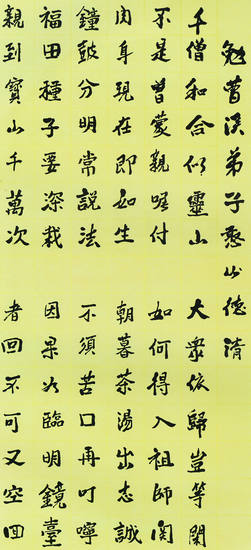 勉曹溪弟子憨山德清
千僧和合似靈山 大眾依歸豈等閑
不是曾蒙親囑付 如何得入祖師関
肉身現在即如生 朝暮茶湯出志誠
鐘皷分明常說法 不須苦口再叮嚀
福田種子要深栽 因果如臨明鏡臺
親到寶山千萬次 者回不可又空回